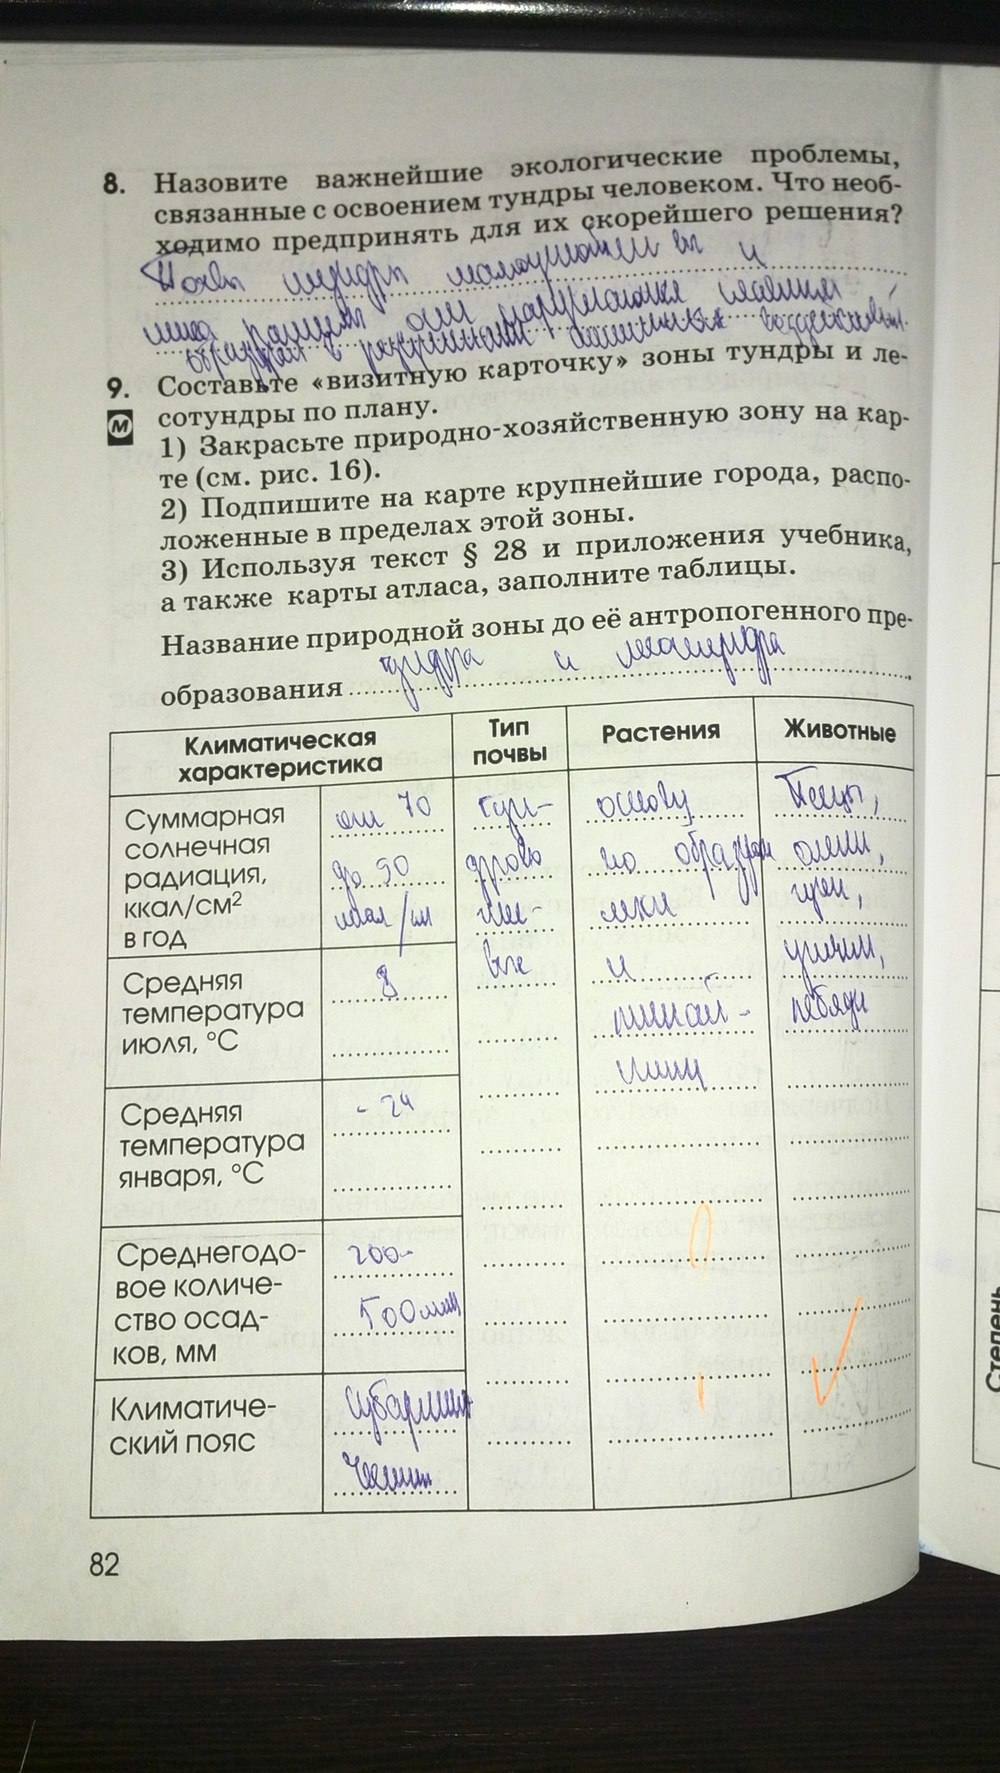 8. Назовите важнейшие экологические проблемы,
связанные с освоением тундры человеком. Что необ-
ходимо предпринять для их скорейшего решения?
тундры и
9. Составьте «визитную карточку» зоны тундры и ле-
М
сотундры по плану.
1) Закрасьте природно-хозяйственную зону на кар-
те (см. рис. 16).
2) Подпишите на карте крупнейшие города, распо-
ложенные в пределах этой зоны.
3) Используя текст § 28 и приложения учебника,
а также карты атласа, заполните таблицы.
Название природной зоны до её антропогенного пре-
образования тундра и лесотундра
Климатическая характеристика
Тип почвы
Растения
Животные
Суммарная солнечная радиация, ккал/см² в год
от 70
до 90
ккал/см
Средняя температура июля, °С
8
Средняя температура января, °С
- 24
Среднегодо-
вое количе-
ство осад-
ков, мм
200-
500 мм
Климатиче-
ский пояс
субаркти
ческий
тун-
дрово
гле-
вые
основу
образуют
мхи
и
лишай-
ники
Песцы,
олени,
гуси,
лебеди
82
Степень